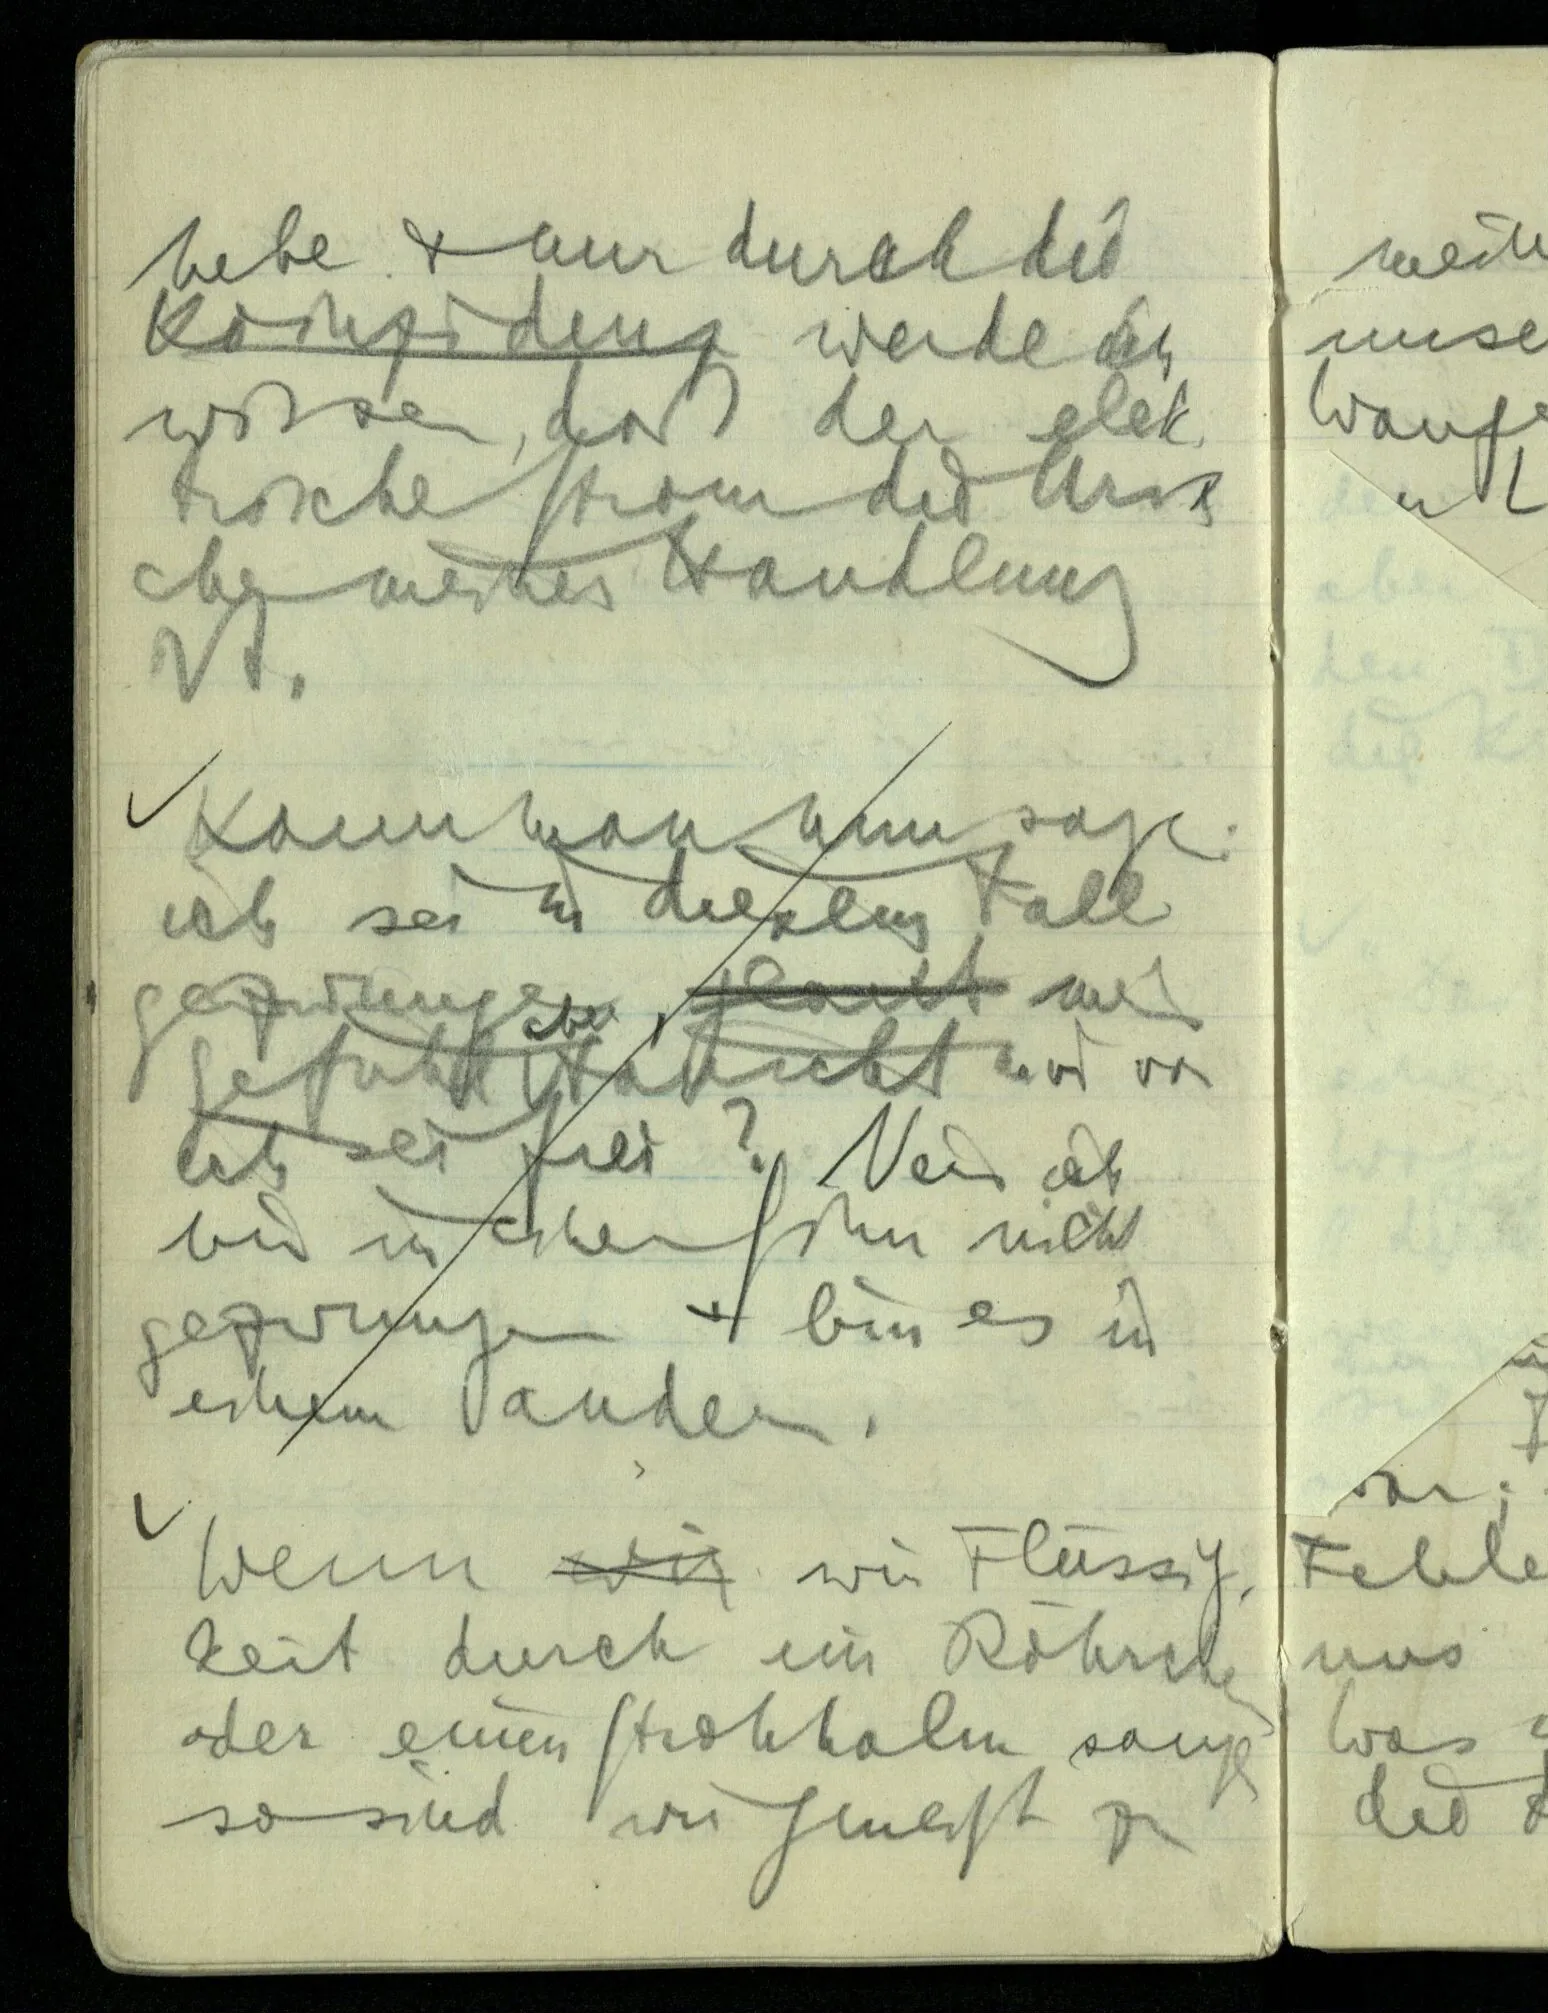 hebe & nur durch die
Koinzidenz werde ich
wissen, daß der elek
trische Strom die Ursa
che meiner Handlung
ist.
Kann man nun sage:
ich sei in diesem Fall
gezwungen, glaubt mein
aber
Gefühl täuscht mich wo
ich sei frei? Nein ich
bin in einem Sinn nicht
gezwungen & bin es in
einem andern.
Wenn wir wir Flüssig-
keit durch ein Röhrchen
oder einen Strohhalm sauge
so sind wir geneigt zu